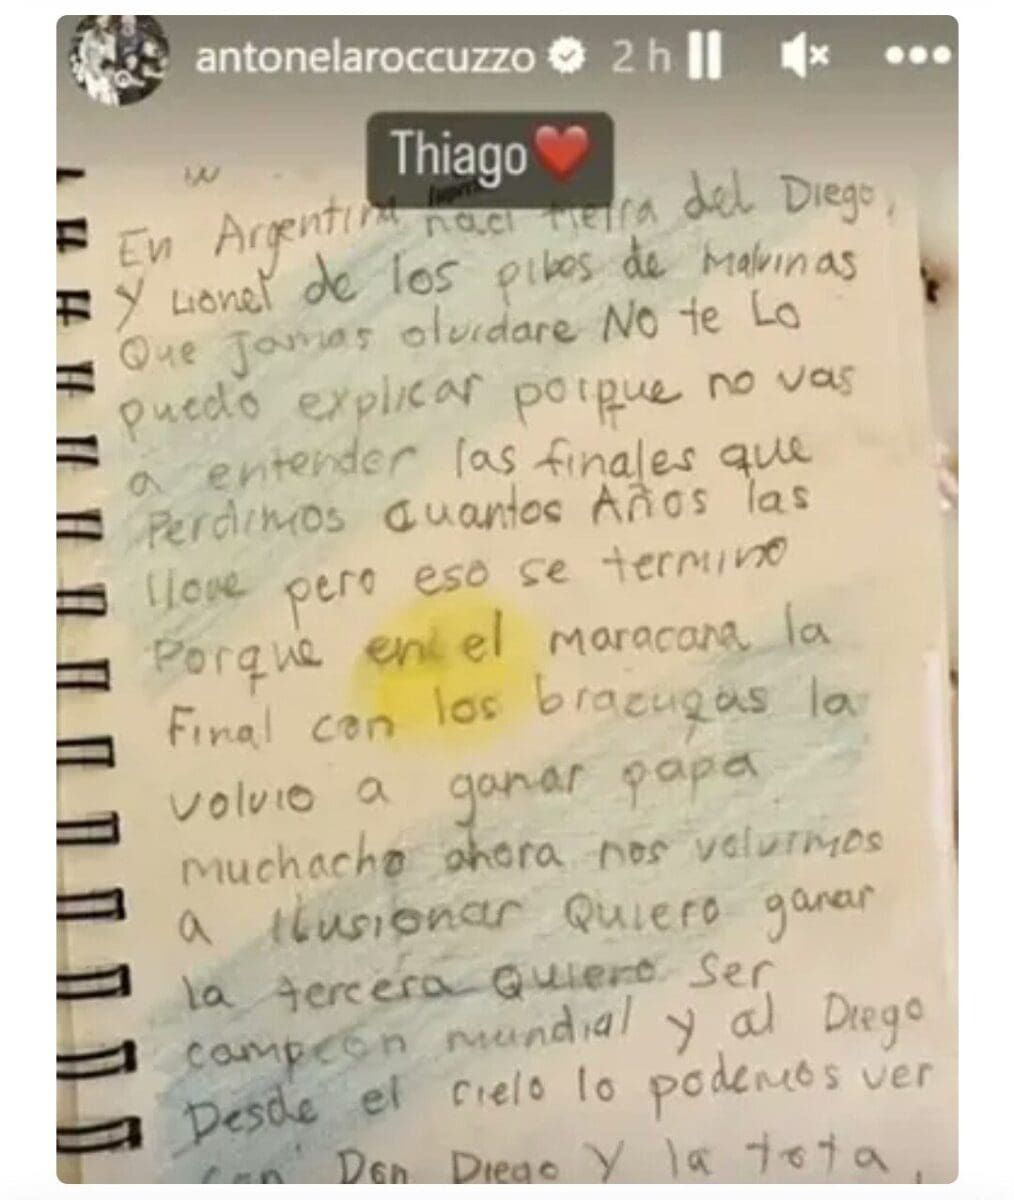 antonelaroccuzzo 2 h
Thiago
En Argentina naci tierra del Diego,
Y Lionel de los pibes de Malvinas
Que jamas olvidare No te Lo
puedo explicar porque no vas
a entender las finales que
Perdimos cuantos Años las
llore pero eso se termino
Porque en el maracana la
Final con los brazugas la
volvio a ganar papa
muchacho ahora nos volvimos
a ilusionar Quiero ganar
la tercera Quiero Ser
campeon mundial y al Diego
Desde el cielo lo podemos ver
con Don Diego Y la tota,